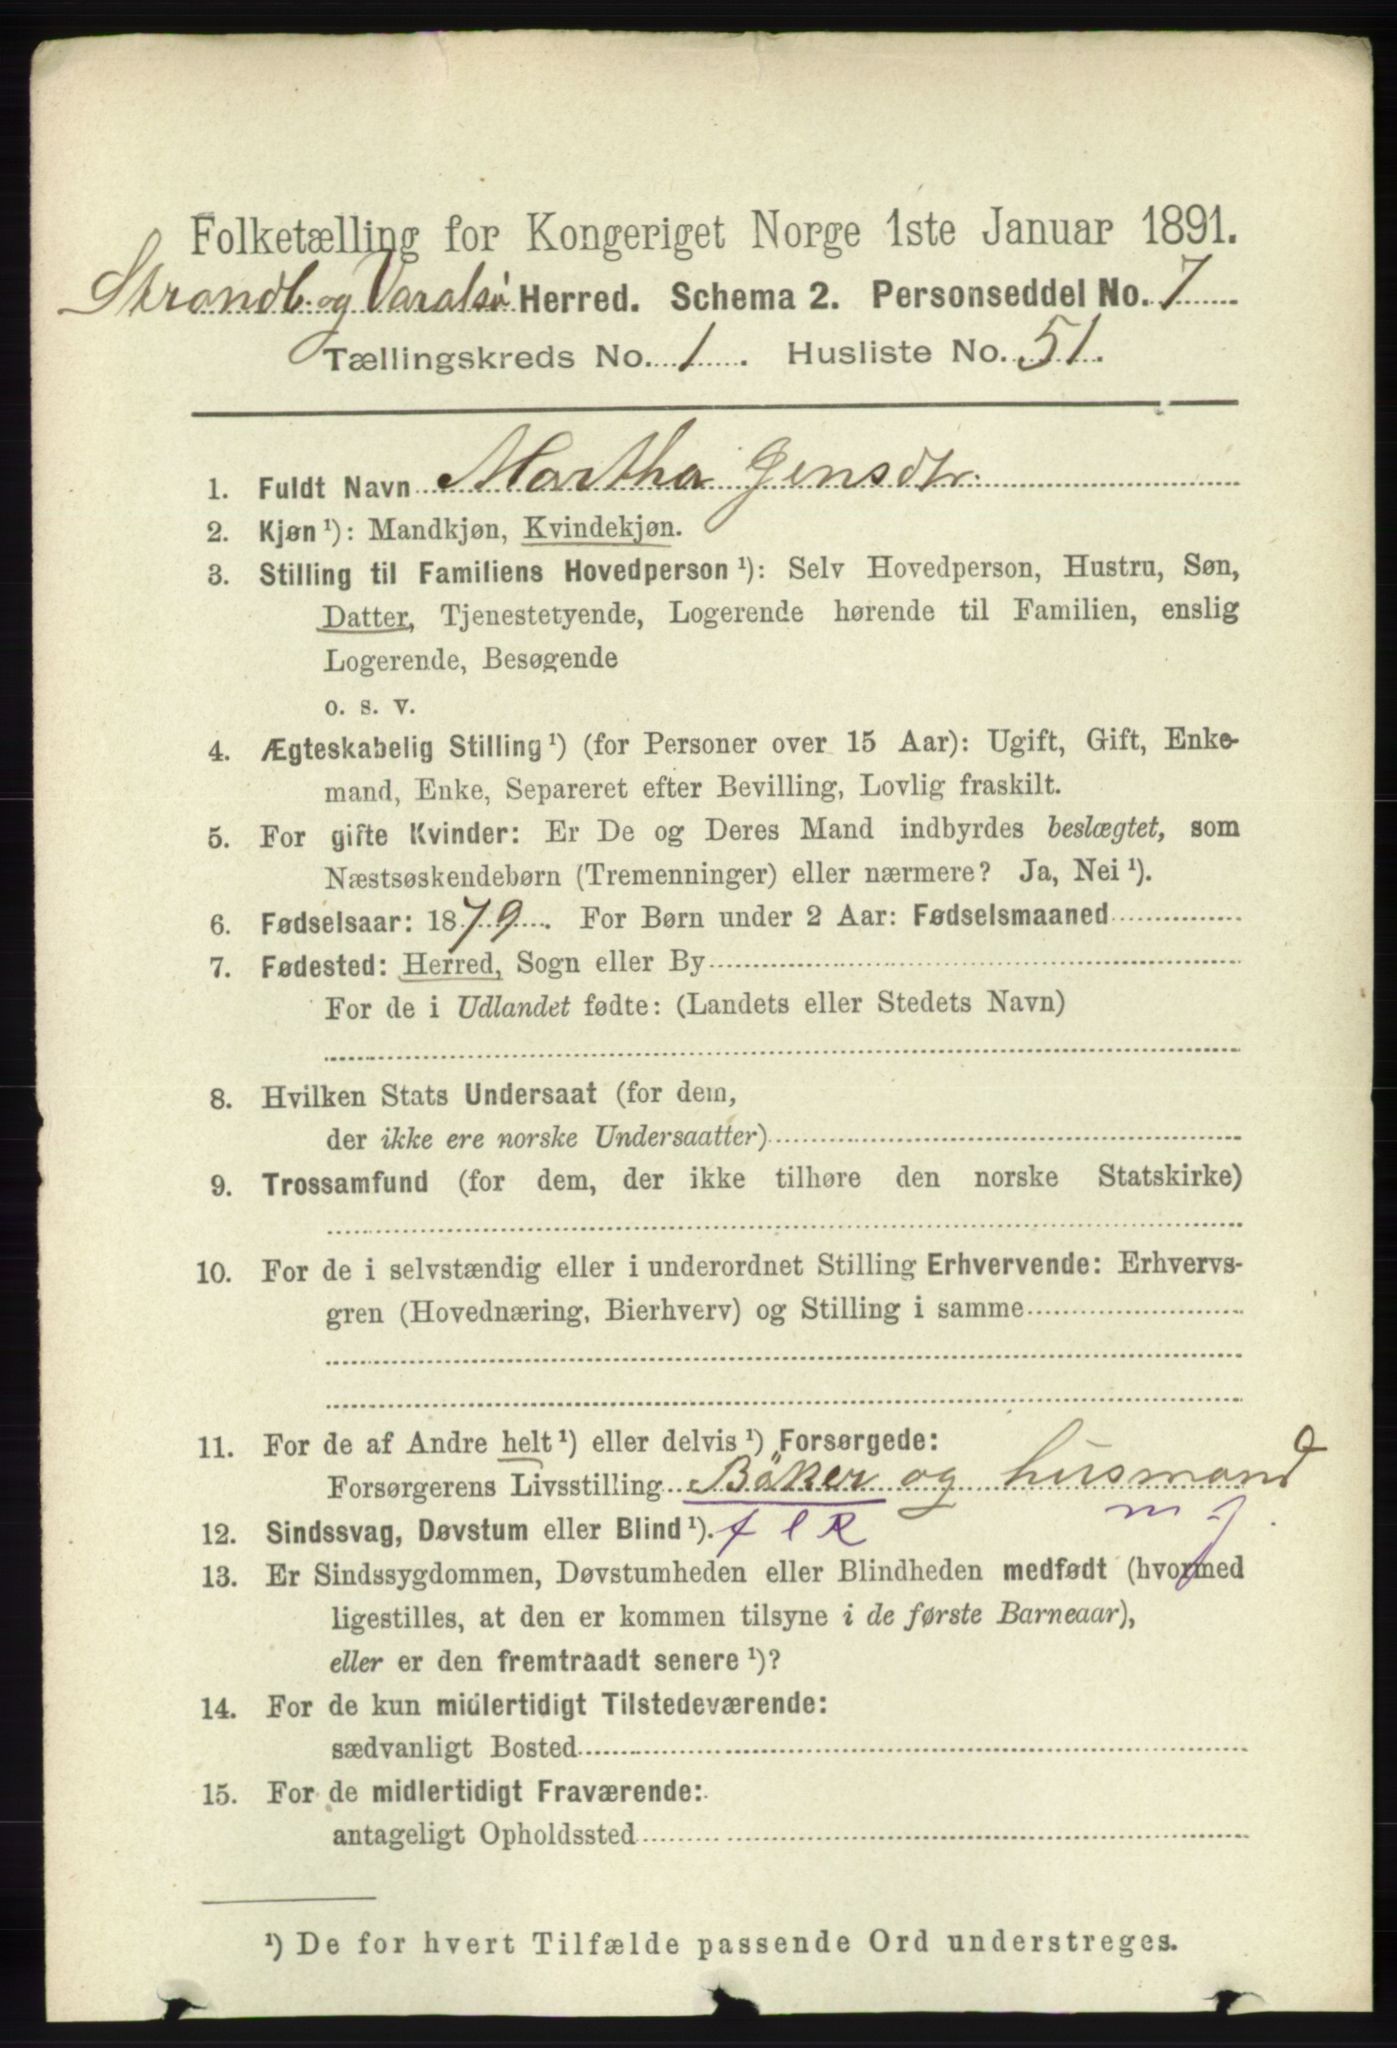 Folketælling for Kongeriget Norge 1ste Januar 1891.
Strandb. og Varalsø Herred. Schema 2. Personseddel No. 7
Tællingskreds No. 1. Husliste No. 51.
1. Fuldt Navn Martha Jensdtr.
2. Kjøn ¹): Mandkjøn, Kvindekjøn.
3. Stilling til Familiens Hovedperson ¹): Selv Hovedperson, Hustru, Søn,
Datter, Tjenestetyende, Logerende hørende til Familien, enslig
Logerende, Besøgende
o. s. v.
4. Ægteskabelig Stilling ¹) (for Personer over 15 Aar): Ugift, Gift, Enke-
mand, Enke, Separeret efter Bevilling, Lovlig fraskilt.
5. For gifte Kvinder: Er De og Deres Mand indbyrdes beslægtet, som
Næstsøskendebørn (Tremenninger) eller nærmere? Ja, Nei ¹).
6. Fødselsaar: 1879. For Børn under 2 Aar: Fødselsmaaned
7. Fødested: Herred, Sogn eller By
For de i Udlandet fødte: (Landets eller Stedets Navn)
8. Hvilken Stats Undersaat (for dem,
der ikke ere norske Undersaatter)
9. Trossamfund (for dem, der ikke tilhøre den norske Statskirke)
10. For de i selvstændig eller i underordnet Stilling Erhvervende: Erhvervs-
gren (Hovednæring, Bierhverv) og Stilling i samme
11. For de af Andre helt ¹) eller delvis ¹) Forsørgede:
Forsørgerens Livsstilling Böker og husmand
12. Sindssvag, Døvstum eller Blind ¹). f l R m j.
13. Er Sindssygdommen, Døvstumheden eller Blindheden medfødt (hvormed
ligestilles, at den er kommen tilsyne i de første Barneaar),
eller er den fremtraadt senere ¹)?
14. For de kun midlertidigt Tilstedeværende:
sædvanligt Bosted
15. For de midlertidigt Fraværende:
antageligt Opholdssted
¹) De for hvert Tilfælde passende Ord understreges.